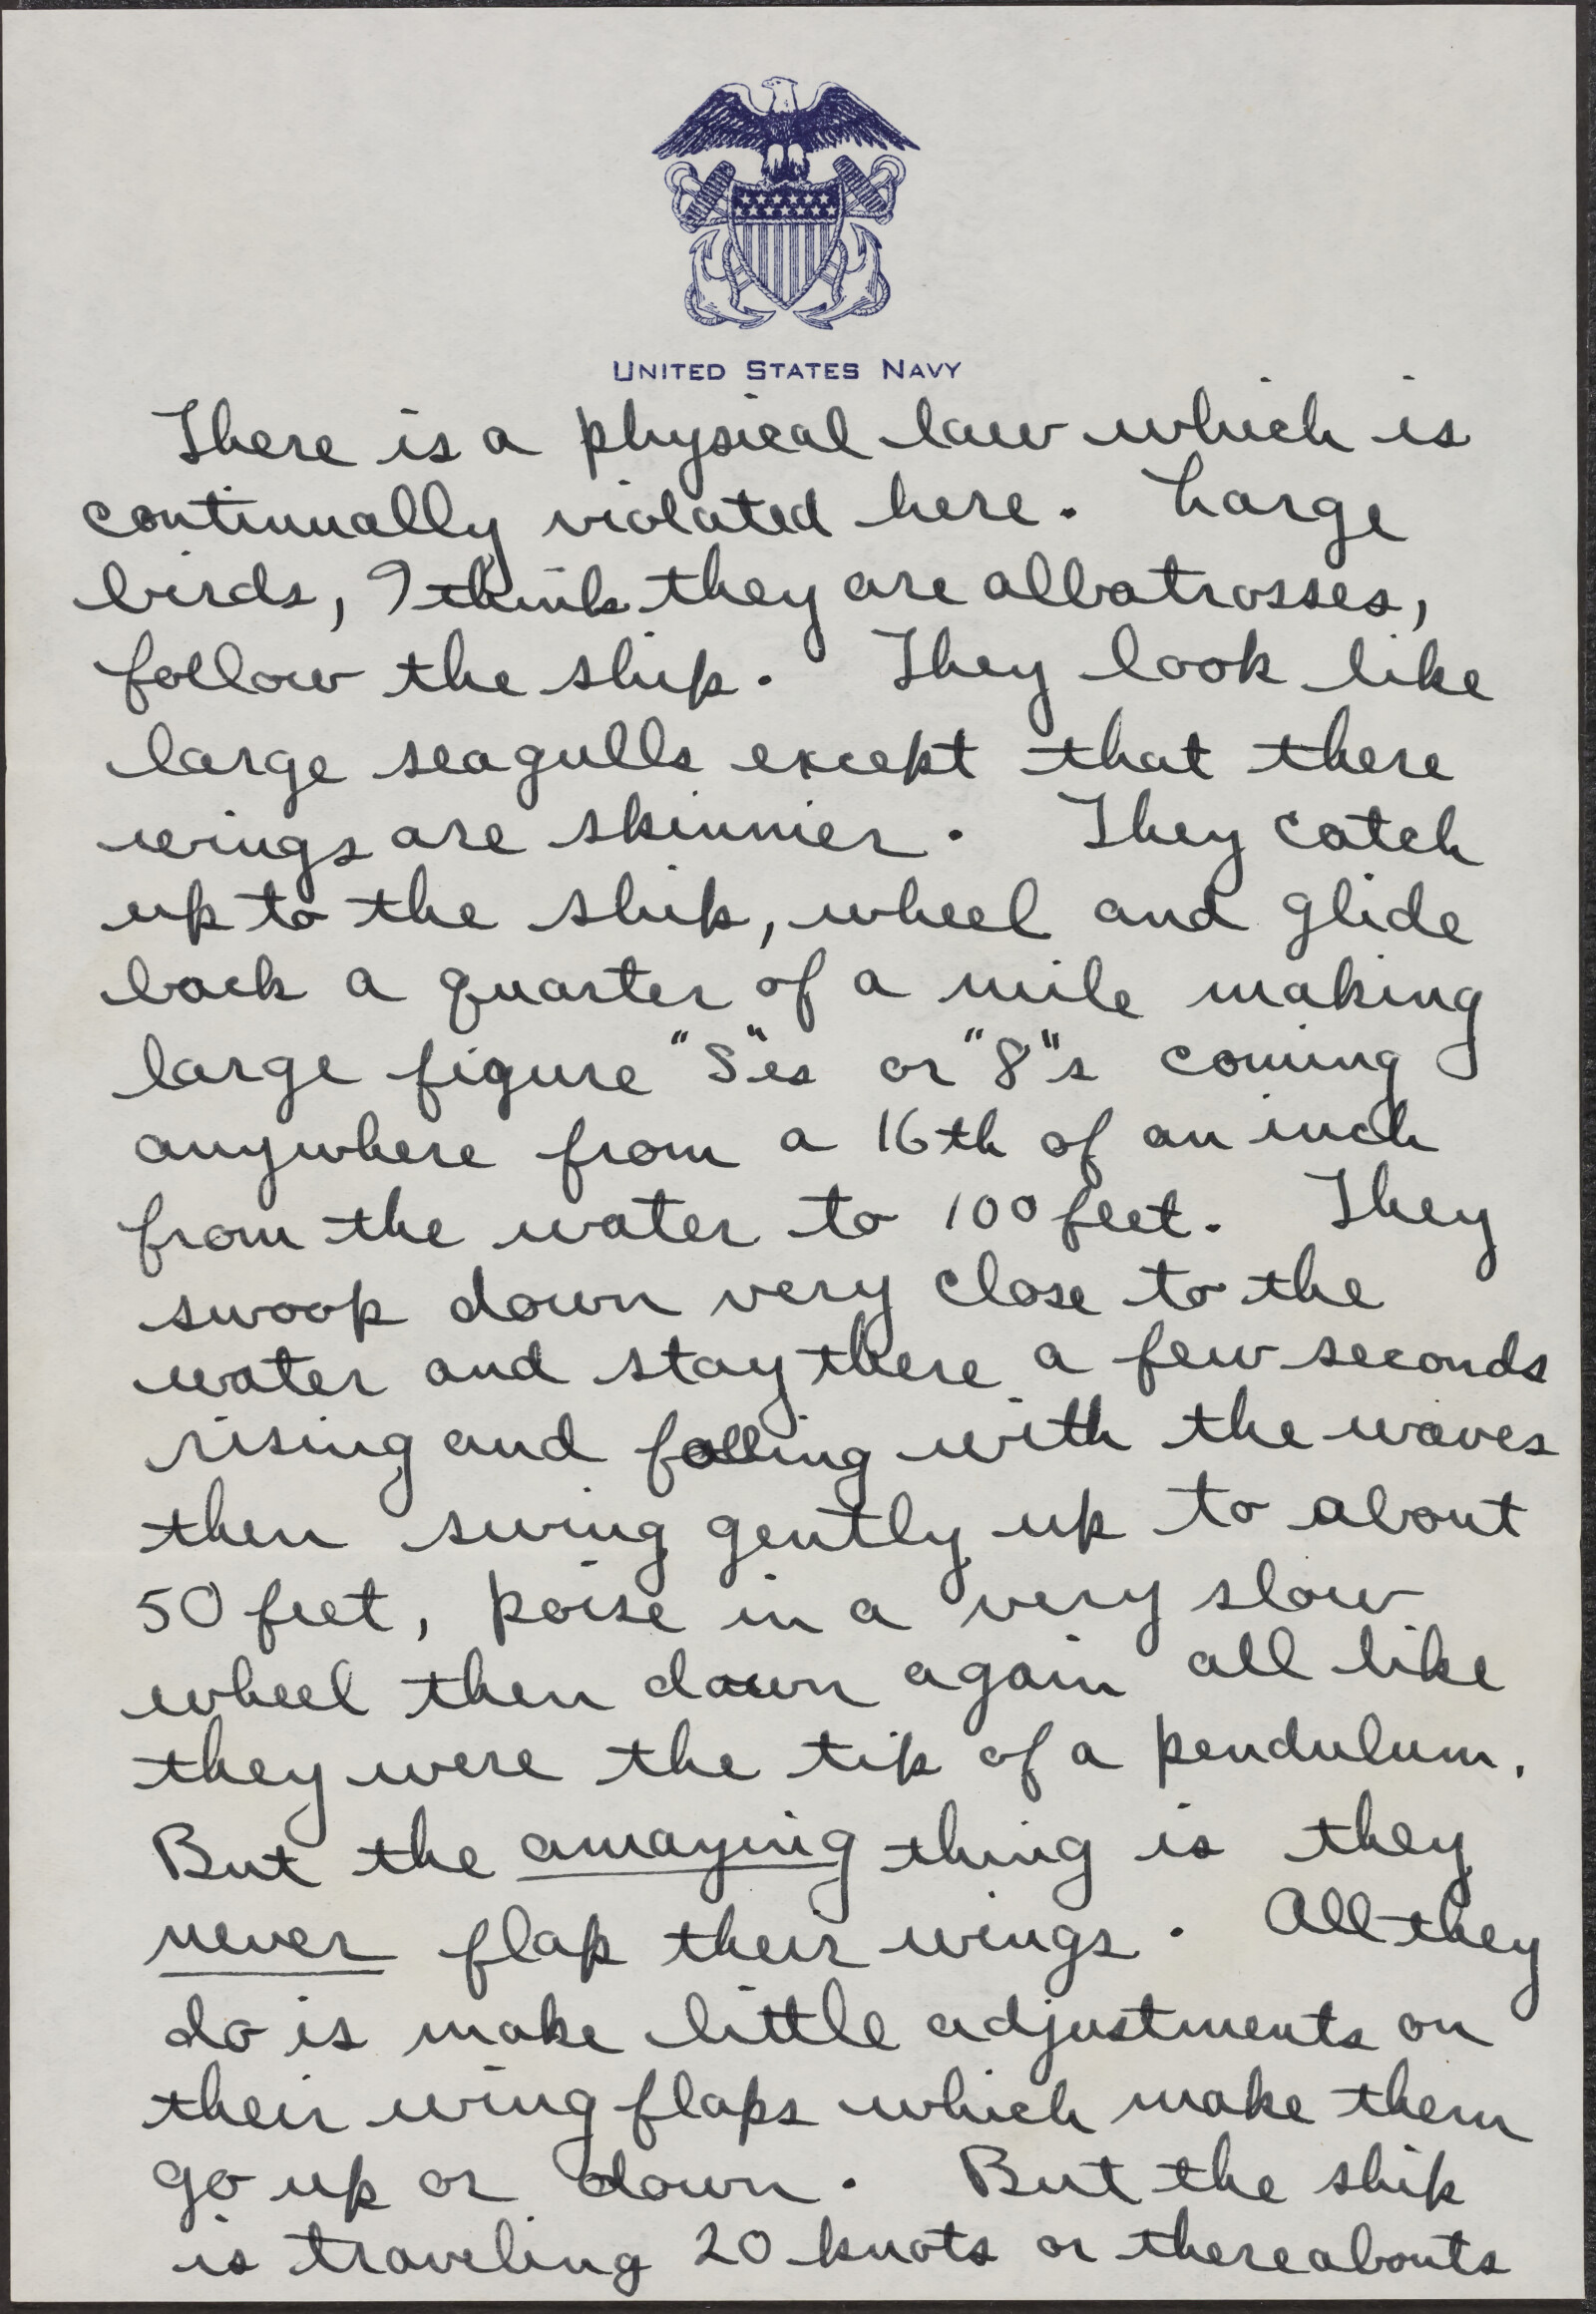 UNITED STATES NAVY
There is a physical law which is
continually violated here. Large
birds, I think they are albatrosses,
follow the ship. They look like
large seagulls except that there
wings are skinnier. They catch
up to the ship, wheel and glide
back a quarter of a mile making
large figure "S"es or "8"s coming
anywhere from a 16th of an inch
from the water to 100 feet. They
swoop down very close to the
water and stay there a few seconds
rising and falling with the waves
then swing gently up to about
50 feet, poise in a very slow
wheel then down again all like
they were the tip of a pendulum.
But the amazing thing is they
never flap their wings. All they
do is make little adjustments on
their wing flaps which make them
go up or down. But the ship
is traveling 20 knots or thereabouts